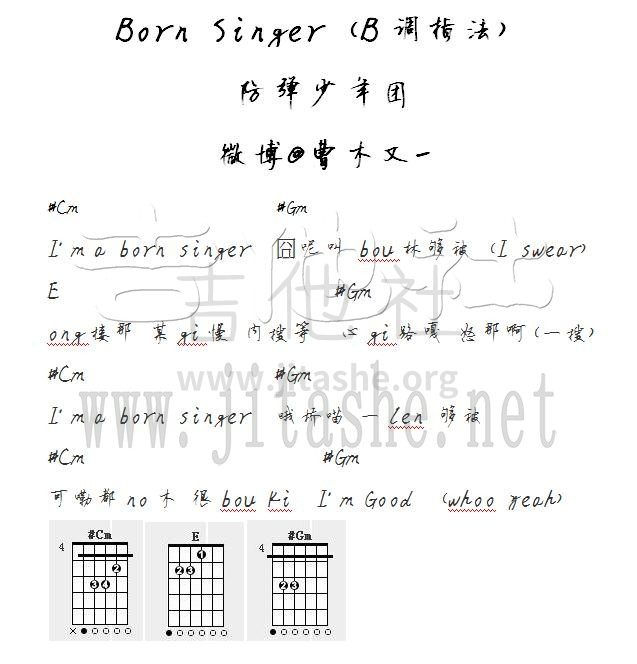 Born Singer (B调指法)
防弹少年团
微博@曹木文一
#Cm #Gm
I'm a born singer 囧呢叫 bou林够被 (I swear)
E #Gm
ong搂那 某gi慢 内搜等 心gi路嘎 怒那啊(一搜)
#Cm #Gm
I'm a born singer 哦桥喵 一 len 够被
#Cm #Gm
可勒都 no 木 很 bou Ki I'm Good (whoo yeah)
吉他社
www.jitashe.org
www.jitashe.net
#Cm E #Gm
4 4
2 1
3 4 2 3 2 3
x